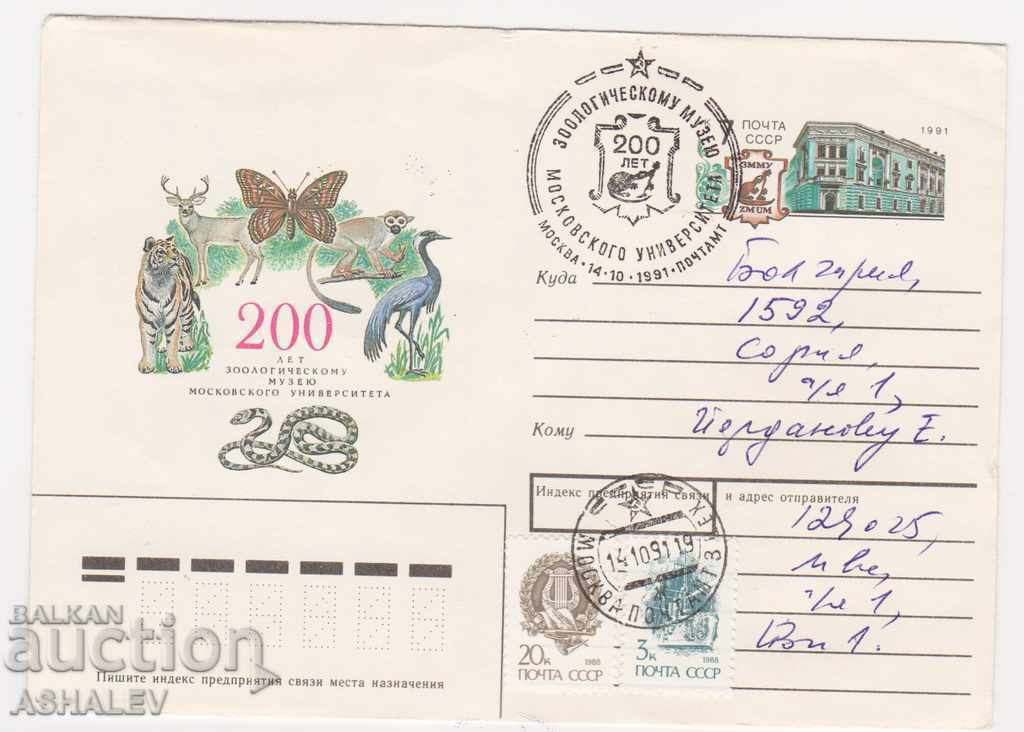 200
ЛЕТ
ЗООЛОГИЧЕСКОМУ
МУЗЕЮ
МОСКОВСКОГО УНИВЕРСИТЕТА
ЗООЛОГИЧЕСКОМУ МУЗЕЮ
МОСКОВСКОГО УНИВЕРСИТЕТА
200
ЛЕТ
МОСКВА · 14 · 10 · 1991 · ПОЧТАМТ
ПОЧТА
СССР
1991
ЗММУ
ZMUM
Куда
Болгария,
1592,
София,
а/я 1,
Кому
Йорданову Е.
Индекс предприятия связи и адрес отправителя
129025,
а/я 1,
МОСКВА ПОЧТАМТ
14 10 91 19
20к
1988
ПОЧТА СССР
3к
1988
ПОЧТА СССР
Пишите индекс предприятия связи места назначения
BALKAN
auction
ASHALEV